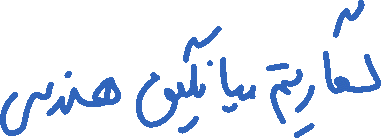 لگاریتم میانگین هندسی